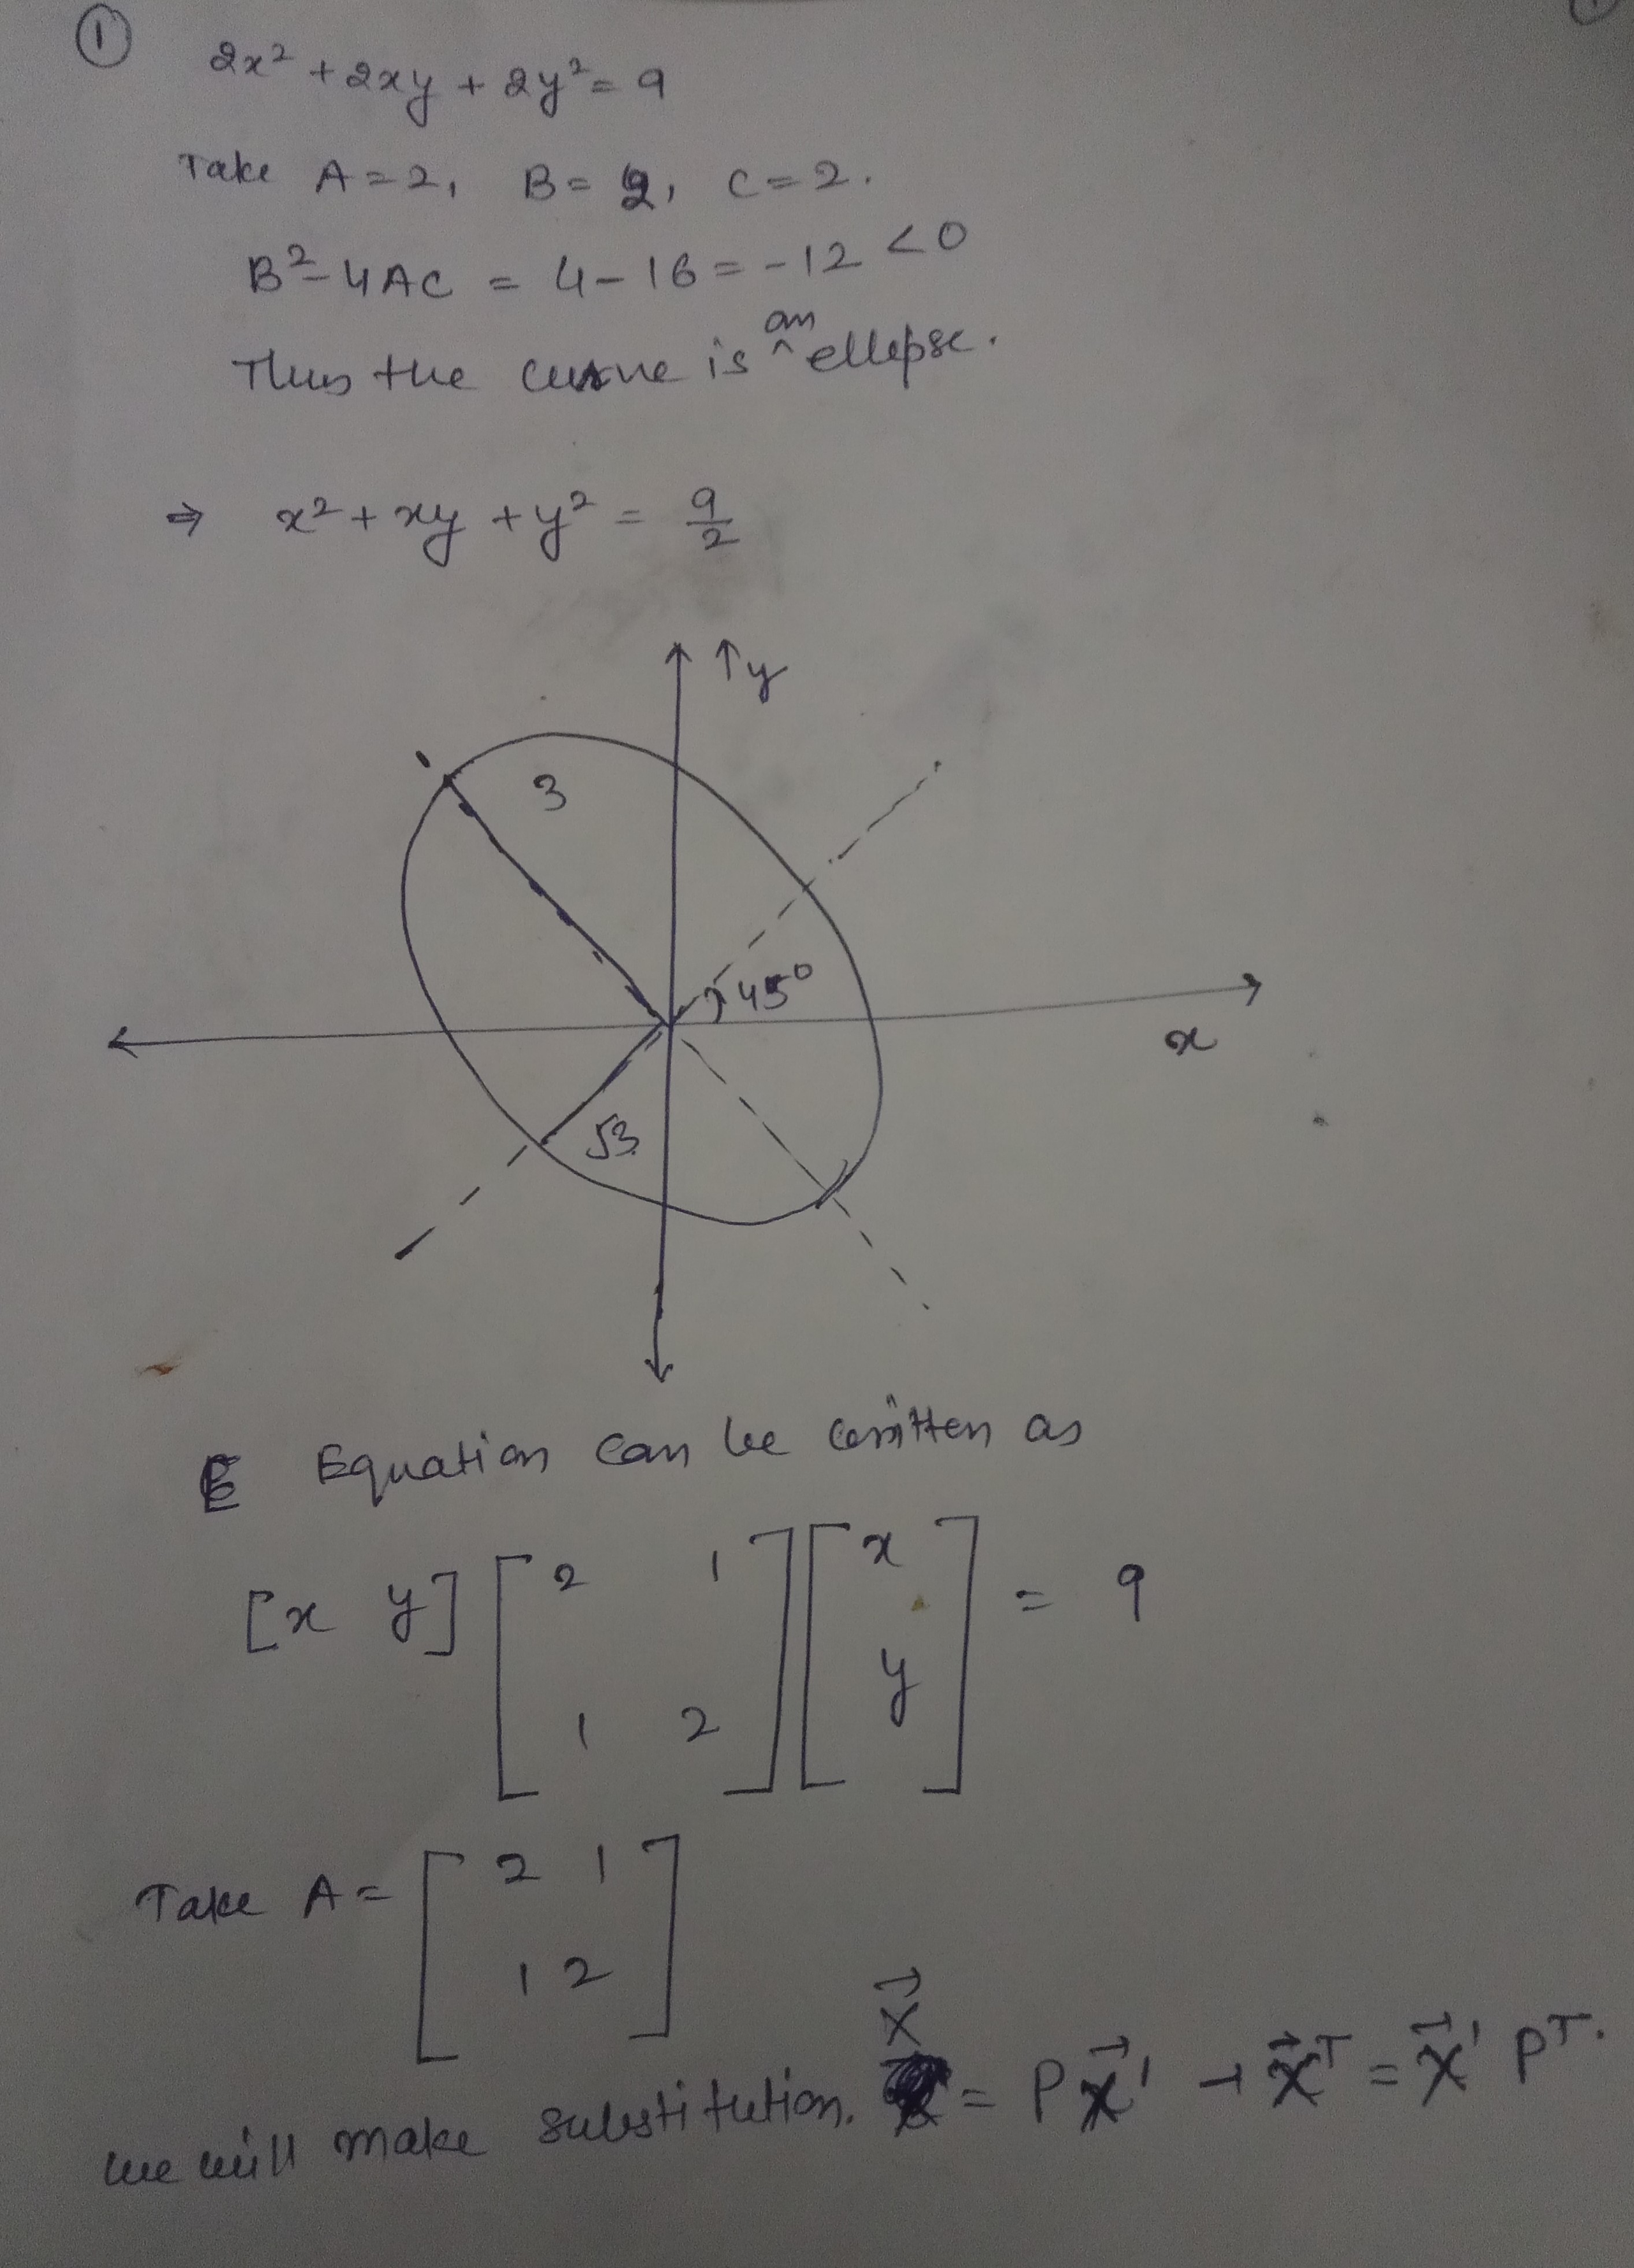 ①
2x² + 2xy + 2y² = 9
Take A = 2, B = 2, C = 2.
B² - 4AC = 4 - 16 = -12 < 0
Thus the curve is an ellipse.
⇒ x² + xy + y² = 9/2
↑y
3
45°
x
√3
Equation can be written as
[x y] [2 1
1 2] [x
y] = 9
Take A = [2 1
1 2]
we will make substitution. X⃗ = P X⃗' → X⃗ᵀ = X⃗' Pᵀ.